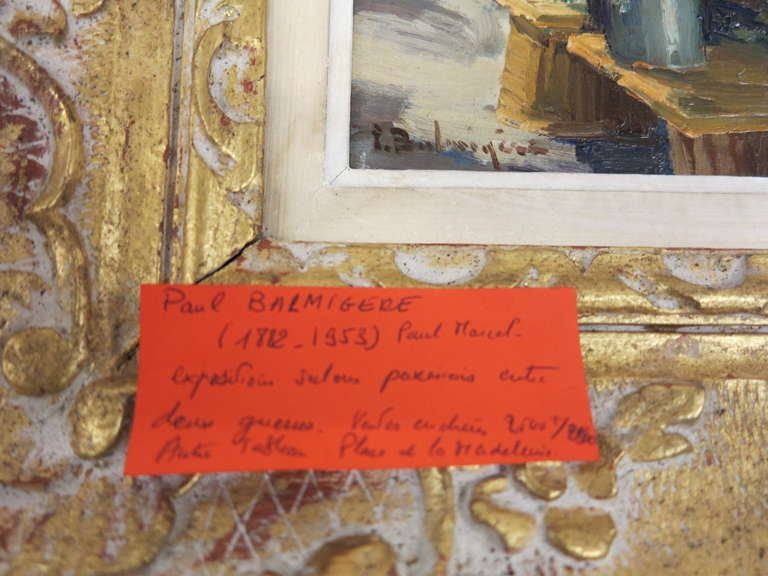 P. Balmigère
Paul BALMIGERE
(1882-1953) Paul Marcel-
expositions salons parisiens entre
deux guerres. Ventes enchères
Autre Tableau Place de la Madeleine.